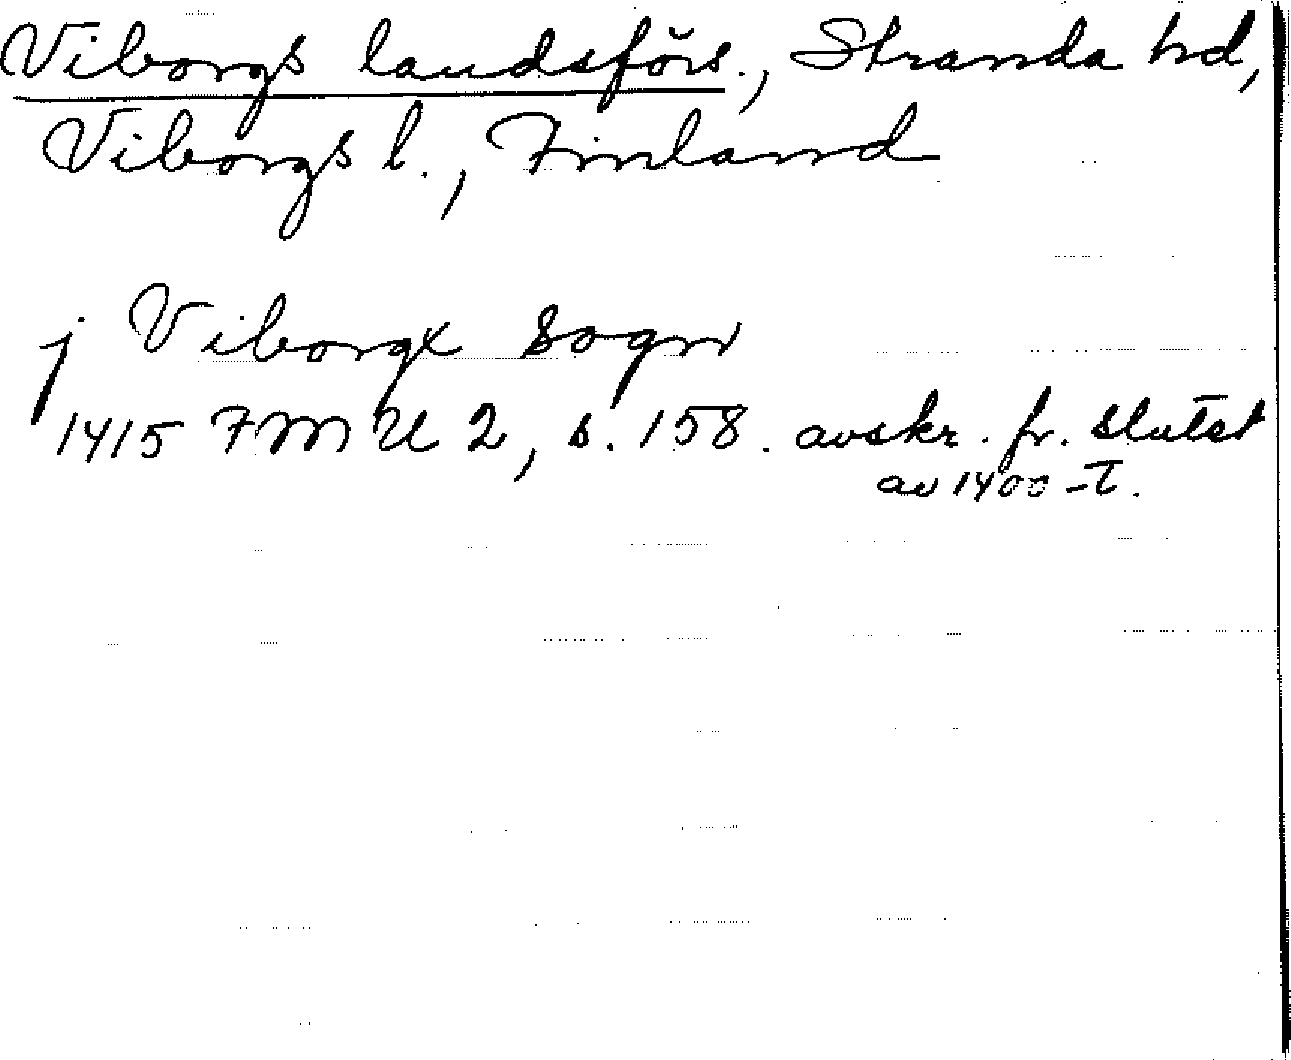 Viborgs landsförs., Stranda hd,
Viborgs l., Finland
j Viborgx Sogn
1415 FMU 2, s. 158. avskr. fr. slutet
av 1400-t.